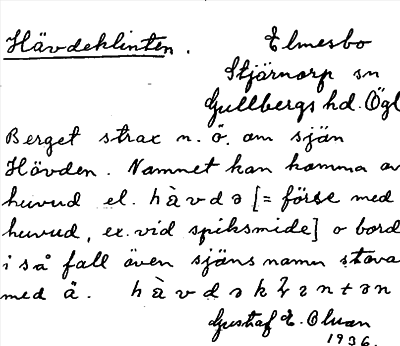 Hävdeklinten. Elmesbo
Stjärnorp sn
Gullbergs hd. Ögl
Berget strax n. ö. om sjön
Hövden. Namnet kan komma av
huvud el. hàvdə [= förse med
huvud, ex. vid spiksmide] o bord
i så fall även sjöns namn stava
med ä. hàvdə
Gustaf E. Olsson
1936.